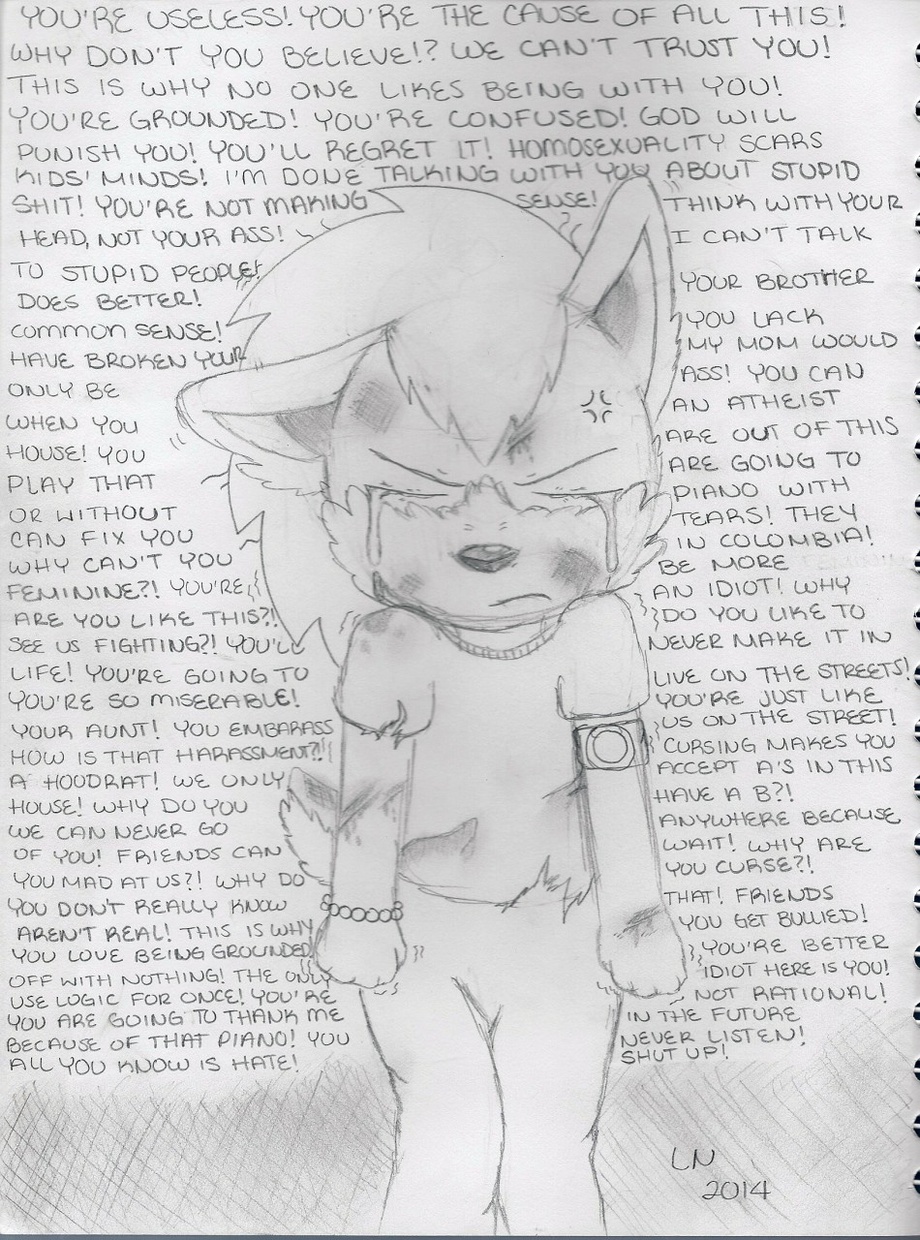 YOU'RE USELESS! YOU'RE THE CAUSE OF ALL THIS!
WHY DON'T YOU BELIEVE!? WE CAN'T TRUST YOU!
THIS IS WHY NO ONE LIKES BEING WITH YOU!
YOU'RE GROUNDED! YOU'RE CONFUSED! GOD WILL
PUNISH YOU! YOU'LL REGRET IT! HOMOSEXUALITY SCARS
KIDS' MINDS! I'M DONE TALKING WITH YOU ABOUT STUPID
SHIT! YOU'RE NOT MAKING SENSE! THINK WITH YOUR
HEAD, NOT YOUR ASS! I CAN'T TALK
TO STUPID PEOPLE! YOUR BROTHER
DOES BETTER! YOU LACK
COMMON SENSE! MY MOM WOULD
HAVE BROKEN YOUR ASS! YOU CAN
ONLY BE AN ATHEIST
WHEN YOU ARE OUT OF THIS
HOUSE! YOU ARE GOING TO
PLAY THAT PIANO WITH
OR WITHOUT TEARS! THEY
CAN FIX YOU IN COLOMBIA!
WHY CAN'T YOU BE MORE
FEMININE?! YOU'RE AN IDIOT! WHY
ARE YOU LIKE THIS?! DO YOU LIKE TO
SEE US FIGHTING?! YOU'LL NEVER MAKE IT IN
LIFE! YOU'RE GOING TO LIVE ON THE STREETS!
YOU'RE SO MISERABLE! YOU'RE JUST LIKE
YOUR AUNT! YOU EMBARASS US ON THE STREET!
HOW IS THAT HARASSMENT?! CURSING MAKES YOU
A HOODRAT! WE ONLY ACCEPT A'S IN THIS
HOUSE! WHY DO YOU HAVE A B?!
WE CAN NEVER GO ANYWHERE BECAUSE
OF YOU! FRIENDS CAN WAIT! WHY ARE
YOU MAD AT US?! WHY DO YOU CURSE?!
YOU DON'T REALLY KNOW THAT! FRIENDS
AREN'T REAL! THIS IS WHY YOU GET BULLIED!
YOU LOVE BEING GROUNDED! YOU'RE BETTER
OFF WITH NOTHING! THE ONLY IDIOT HERE IS YOU!
USE LOGIC FOR ONCE! YOU'RE NOT RATIONAL!
YOU ARE GOING TO THANK ME IN THE FUTURE
BECAUSE OF THAT PIANO! YOU NEVER LISTEN!
ALL YOU KNOW IS HATE! SHUT UP!
LN
2014